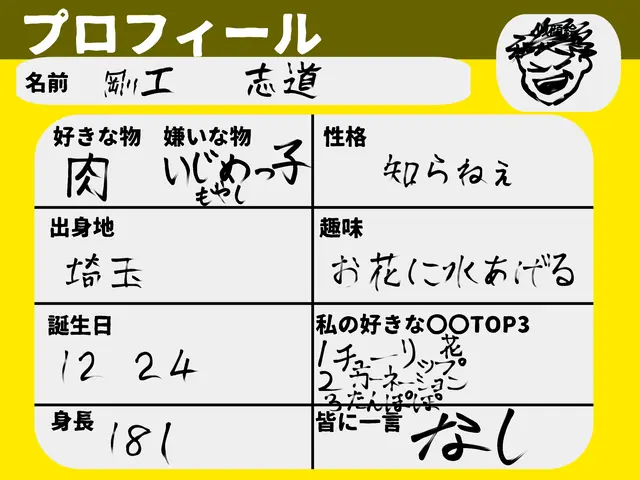 プロフィール
名前 剛工 志道
好きな物 嫌いな物
肉 いじめっ子
もやし
性格
知らねぇ
出身地
埼玉
趣味
お花に水あげる
誕生日
12 24
私の好きな〇〇TOP3
花
1チューリップ
2カーネーション
3たんぽぽ
身長
181
皆に一言
なし